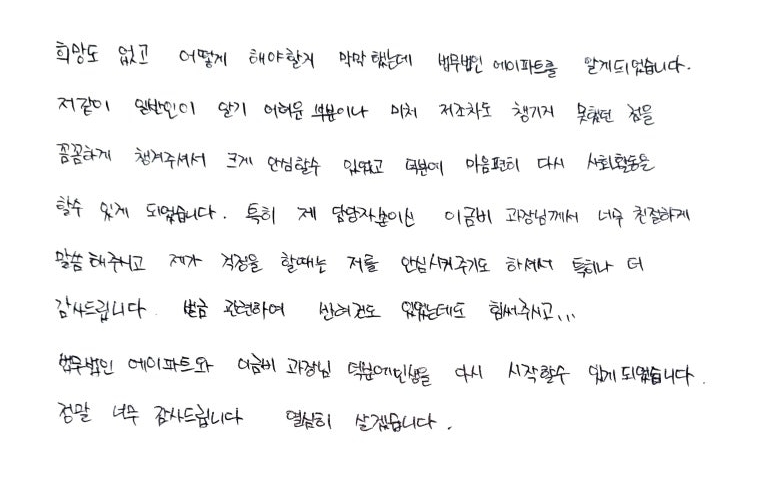 희망도 없고 어떻게 해야할지 막막했는데 법무법인 에이파트를 알게되었습니다.
저같이 일반인이 알기 어려운 부분이나 미처 저조차도 챙기지 못했던 점을
꼼꼼하게 챙겨주셔서 크게 안심할수 있었고 덕분에 마음편히 다시 사회활동을
할수 있게 되었습니다. 특히 제 담당자분이신 이금비 과장님께서 너무 친절하게
말씀해주시고 제가 걱정을 할때는 저를 안심시켜주기도 하셔서 특히나 더
감사드립니다. 벌금 관련하여 반려건도 있었는데도 힘써주시고...
법무법인 에이파트와 이금비 과장님 덕분에인생을 다시 시작할수 있게되었습니다.
정말 너무 감사드립니다 열심히 살겠습니다.